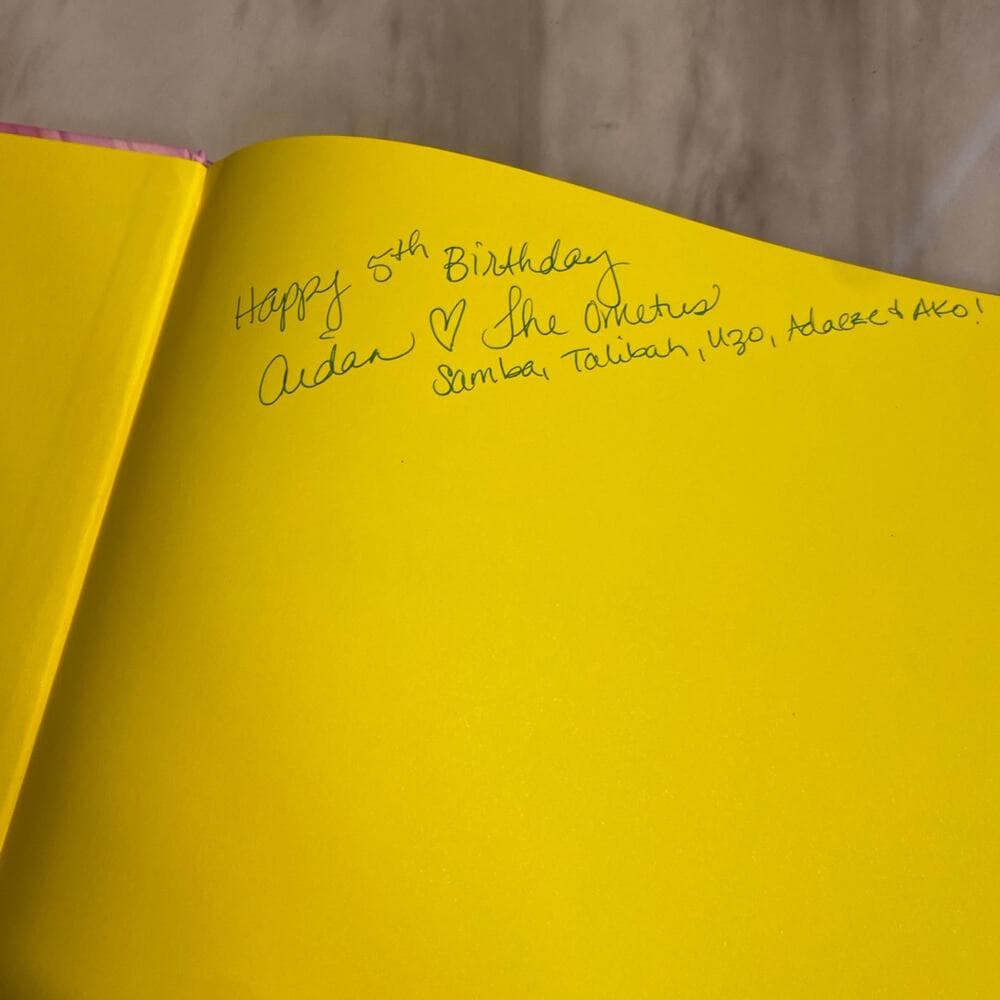 Happy 5th Birthday
Aidan ♡ The Ometus'
Samba, Talibah, Uzo, Adaeze & AKO!